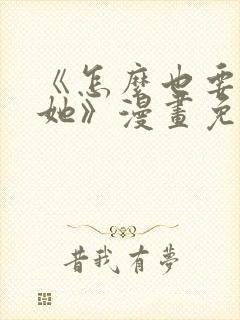 《怎麼也要
她》漫畫免
昔我有夢